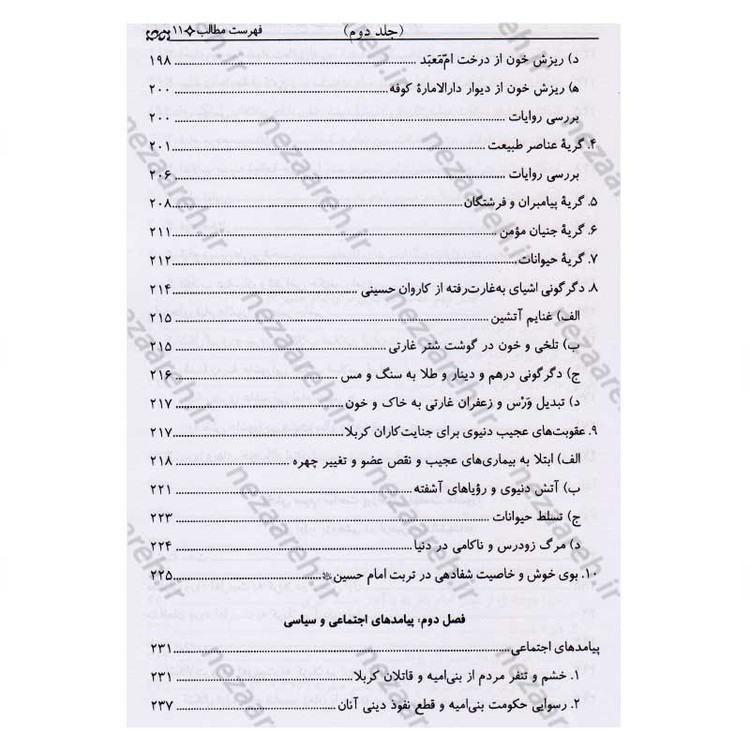 فهرست مطالب ۱۱ (جلد دوم)
د) ریزش خون از درخت امّ‌مَعبَد ........ ۱۹۸
ه) ریزش خون از دیوار دارالاماره کوفه ........ ۲۰۰
بررسی روایات ........ ۲۰۰
۴. گریهٔ عناصر طبیعت ........ ۲۰۱
بررسی روایات ........ ۲۰۶
۵. گریهٔ پیامبران و فرشتگان ........ ۲۰۸
۶. گریهٔ جنیان مؤمن ........ ۲۱۱
۷. گریهٔ حیوانات ........ ۲۱۲
۸. دگرگونی اشیای به‌غارت‌رفته از کاروان حسینی ........ ۲۱۴
الف) غنایم آتشین ........ ۲۱۵
ب) تلخی و خون در گوشت شتر غارتی ........ ۲۱۵
ج) دگرگونی درهم و دینار و طلا به سنگ و مس ........ ۲۱۶
د) تبدیل وَرْس و زعفران غارتی به خاک و خون ........ ۲۱۷
۹. عقوبت‌های عجیب دنیوی برای جنایت‌کاران کربلا ........ ۲۱۷
الف) ابتلا به بیماری‌های عجیب و نقص عضو و تغییر چهره ........ ۲۱۸
ب) آتش دنیوی و رؤیاهای آشفته ........ ۲۲۱
ج) تسلط حیوانات ........ ۲۲۳
د) مرگ زودرس و ناکامی در دنیا ........ ۲۲۴
۱۰. بوی خوش و خاصیت شفادهی در تربت امام حسین ........ ۲۲۵
فصل دوم: پیامدهای اجتماعی و سیاسی
پیامدهای اجتماعی ........ ۲۳۱
۱. خشم و تنفر مردم از بنی‌امیه و قاتلان کربلا ........ ۲۳۱
۲. رسوایی حکومت بنی‌امیه و قطع نفوذ دینی آنان ........ ۲۳۷
nezaareh.ir